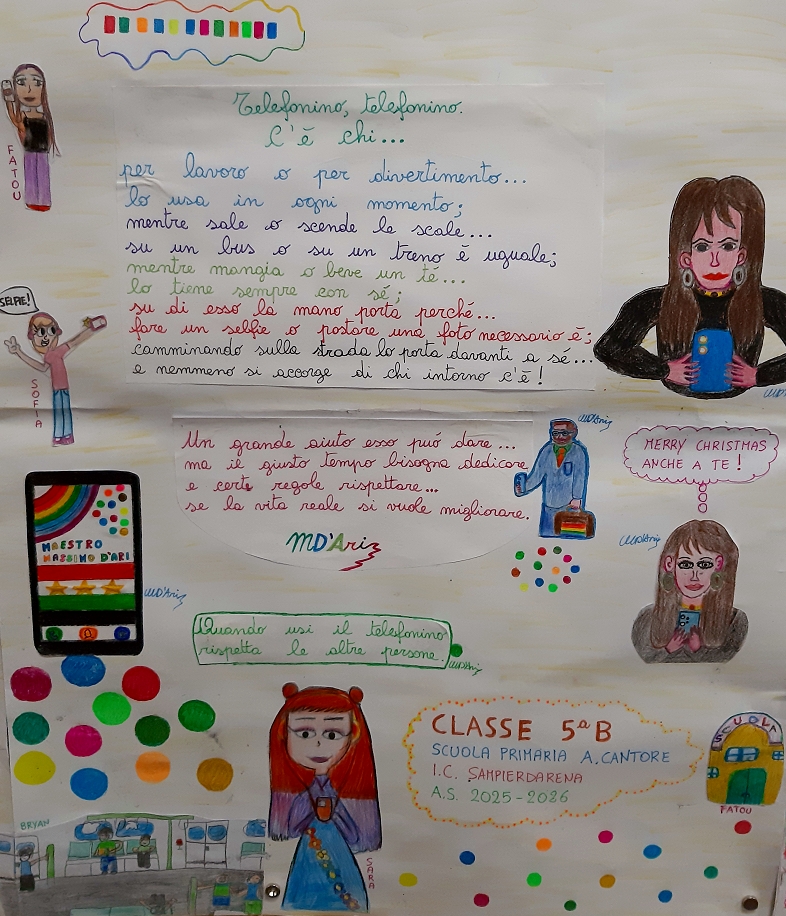 Telefonino, telefonino.
C'è chi...
per lavoro o per divertimento...
lo usa in ogni momento;
mentre sale o scende le scale...
su un bus o su un treno è uguale;
mentre mangia o beve un té...
lo tiene sempre con sé;
su di esso la mano porta perché...
fare un selfie o postare una foto necessario è;
camminando sulla strada lo porta davanti a sé...
e nemmeno si accorge di chi intorno c'è!
FATOU
SELFIE!
SOFIA
Un grande aiuto esso può dare...
ma il giusto tempo bisogna dedicare
e certe regole rispettare...
se la vita reale si vuole migliorare.
MD'Ari
MD'Ari
MERRY CHRISTMAS
ANCHE A TE!
MD'Ari
MAESTRO
MASSIMO D'ARI
MD'Ari
Quando usi il telefonino
rispetta le altre persone.
MD'Ari
CLASSE 5ª B
SCUOLA PRIMARIA A. CANTORE
I.C. SAMPIERDARENA
A.S. 2025-2026
SCUOLA
FATOU
BRYAN
SARA